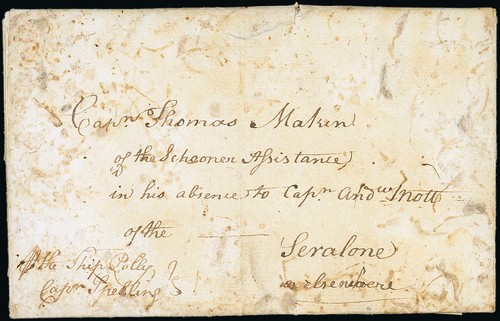 Capn Thomas Makin
of the Schooner Assistance,
in his absence to Capn Andw Mott
of the ——— Seralone
or elsewhere
the Ship Polly,
Capn Spelling